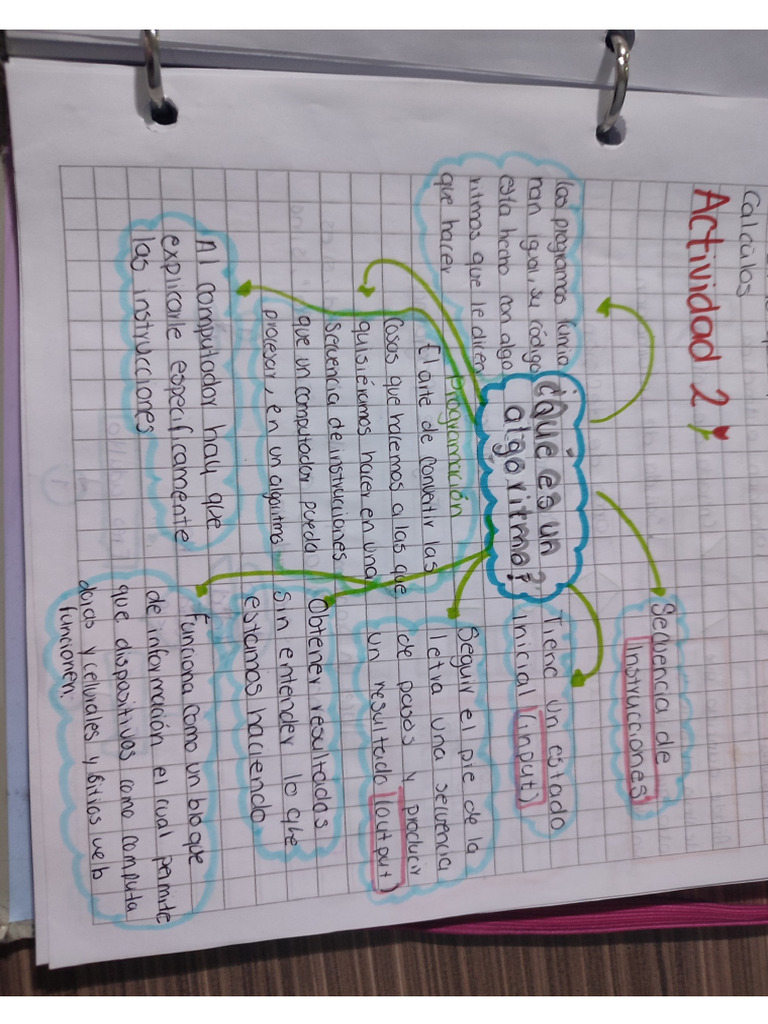 Calculos
Actividad 2
¿Qué es un
algoritmo?
Secuencia de
Instrucciones
Tiene un estado
inicial (input)
Seguir el pie de la
letra una secuencia
de pasos y producir
un resultado (output)
Obtener resultados
sin entender lo que
estamos haciendo
Funciona como un bloque
de información el cual permite
que dispositivos como computa
doras y celurales y sitios web
funcionen.
los programas funcio
nan igual, su código
esta hecho con algo
ritmos que le dicen
que hacer
Programación
El arte de convertir las
cosas que hacemos a las que
quisiéramos hacer en una
secuencia de instrucciones
que un computador pueda
procesar, en un algoritmo
Al computador hay que
explicarle especificamente
las instrucciones